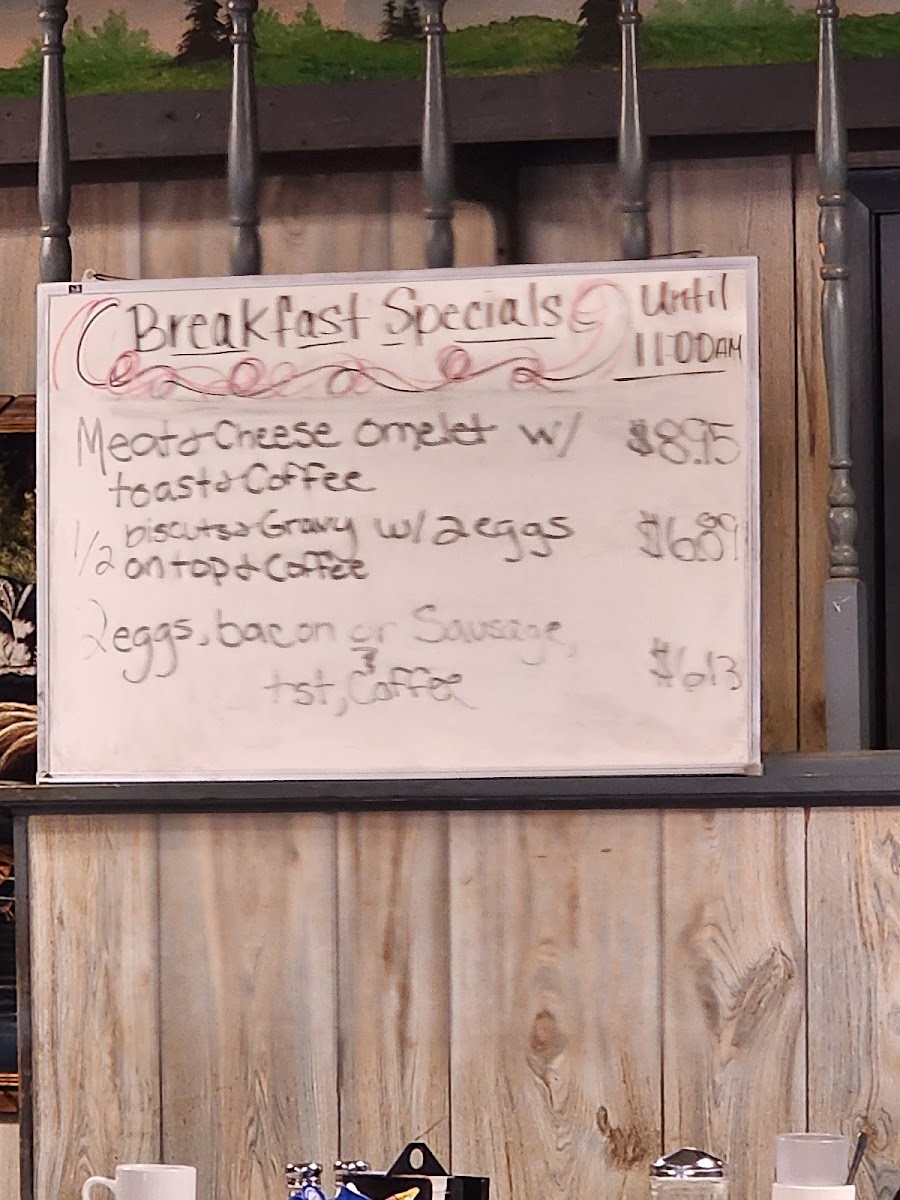 Breakfast Specials Until
11:00AM
Meat & Cheese omelet w/ $8.95
toast & Coffee
1/2 biscuts & Gravy w/ 2 eggs $6.89
on top & Coffee
2 eggs, bacon or Sausage,
tst, & Coffee $6.13